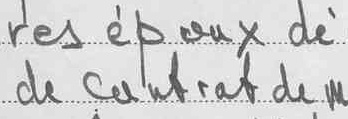 res époux dé
de contrat de m